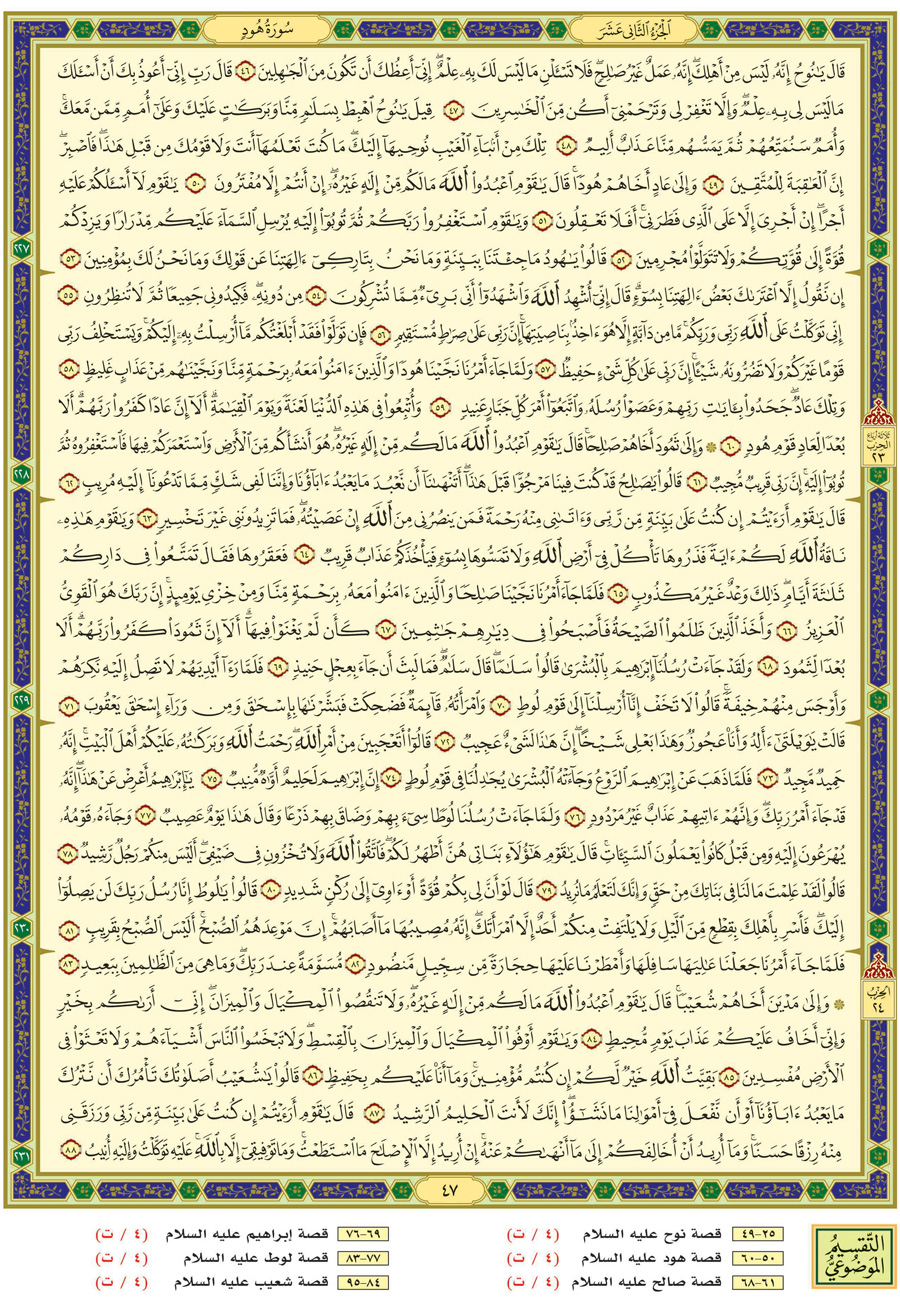 الجزء الثاني عشر
سورة هود
قَالَ يَٰنُوحُ إِنَّهُۥ لَيْسَ مِنْ أَهْلِكَ ۖ إِنَّهُۥ عَمَلٌ غَيْرُ صَٰلِحٍ ۖ فَلَا تَسْـَٔلْنِ مَا لَيْسَ لَكَ بِهِۦ عِلْمٌ ۖ إِنِّىٓ أَعِظُكَ أَن تَكُونَ مِنَ ٱلْجَٰهِلِينَ ٤٦ قَالَ رَبِّ إِنِّىٓ أَعُوذُ بِكَ أَنْ أَسْـَٔلَكَ
مَا لَيْسَ لِى بِهِۦ عِلْمٌ ۖ وَإِلَّا تَغْفِرْ لِى وَتَرْحَمْنِىٓ أَكُن مِّنَ ٱلْخَٰسِرِينَ ٤٧ قِيلَ يَٰنُوحُ ٱهْبِطْ بِسَلَٰمٍ مِّنَّا وَبَرَكَٰتٍ عَلَيْكَ وَعَلَىٰٓ أُمَمٍ مِّمَّن مَّعَكَ ۚ
وَأُمَمٌ سَنُمَتِّعُهُمْ ثُمَّ يَمَسُّهُم مِّنَّا عَذَابٌ أَلِيمٌ ٤٨ تِلْكَ مِنْ أَنۢبَآءِ ٱلْغَيْبِ نُوحِيهَآ إِلَيْكَ ۖ مَا كُنتَ تَعْلَمُهَآ أَنتَ وَلَا قَوْمُكَ مِن قَبْلِ هَٰذَا ۖ فَٱصْبِرْ ۖ
إِنَّ ٱلْعَٰقِبَةَ لِلْمُتَّقِينَ ٤٩ وَإِلَىٰ عَادٍ أَخَاهُمْ هُودًا ۚ قَالَ يَٰقَوْمِ ٱعْبُدُوا۟ ٱللَّهَ مَا لَكُم مِّنْ إِلَٰهٍ غَيْرُهُۥٓ ۖ إِنْ أَنتُمْ إِلَّا مُفْتَرُونَ ٥٠ يَٰقَوْمِ لَآ أَسْـَٔلُكُمْ عَلَيْهِ
أَجْرًا ۖ إِنْ أَجْرِىَ إِلَّا عَلَى ٱلَّذِى فَطَرَنِىٓ ۚ أَفَلَا تَعْقِلُونَ ٥١ وَيَٰقَوْمِ ٱسْتَغْفِرُوا۟ رَبَّكُمْ ثُمَّ تُوبُوٓا۟ إِلَيْهِ يُرْسِلِ ٱلسَّمَآءَ عَلَيْكُم مِّدْرَارًا وَيَزِدْكُمْ
قُوَّةً إِلَىٰ قُوَّتِكُمْ وَلَا تَتَوَلَّوْا۟ مُجْرِمِينَ ٥٢ قَالُوا۟ يَٰهُودُ مَا جِئْتَنَا بِبَيِّنَةٍ وَمَا نَحْنُ بِتَارِكِىٓ ءَالِهَتِنَا عَن قَوْلِكَ وَمَا نَحْنُ لَكَ بِمُؤْمِنِينَ ٥٣
إِن نَّقُولُ إِلَّا ٱعْتَرَىٰكَ بَعْضُ ءَالِهَتِنَا بِسُوٓءٍ ۗ قَالَ إِنِّىٓ أُشْهِدُ ٱللَّهَ وَٱشْهَدُوٓا۟ أَنِّى بَرِىٓءٌ مِّمَّا تُشْرِكُونَ ٥٤ مِن دُونِهِۦ ۖ فَكِيدُونِى جَمِيعًا ثُمَّ لَا تُنظِرُونِ ٥٥
إِنِّى تَوَكَّلْتُ عَلَى ٱللَّهِ رَبِّى وَرَبِّكُم ۚ مَّا مِن دَآبَّةٍ إِلَّا هُوَ ءَاخِذٌۢ بِنَاصِيَتِهَآ ۚ إِنَّ رَبِّى عَلَىٰ صِرَٰطٍ مُّسْتَقِيمٍ ٥٦ فَإِن تَوَلَّوْا۟ فَقَدْ أَبْلَغْتُكُم مَّآ أُرْسِلْتُ بِهِۦٓ إِلَيْكُمْ ۚ وَيَسْتَخْلِفُ رَبِّى
قَوْمًا غَيْرَكُمْ وَلَا تَضُرُّونَهُۥ شَيْـًٔا ۚ إِنَّ رَبِّى عَلَىٰ كُلِّ شَىْءٍ حَفِيظٌ ٥٧ وَلَمَّا جَآءَ أَمْرُنَا نَجَّيْنَا هُودًا وَٱلَّذِينَ ءَامَنُوا۟ مَعَهُۥ بِرَحْمَةٍ مِّنَّا وَنَجَّيْنَٰهُم مِّنْ عَذَابٍ غَلِيظٍ ٥٨
وَتِلْكَ عَادٌ ۖ جَحَدُوا۟ بِـَٔايَٰتِ رَبِّهِمْ وَعَصَوْا۟ رُسُلَهُۥ وَٱتَّبَعُوٓا۟ أَمْرَ كُلِّ جَبَّارٍ عَنِيدٍ ٥٩ وَأُتْبِعُوا۟ فِى هَٰذِهِ ٱلدُّنْيَا لَعْنَةً وَيَوْمَ ٱلْقِيَٰمَةِ ۗ أَلَآ إِنَّ عَادًا كَفَرُوا۟ رَبَّهُمْ ۗ أَلَا
بُعْدًا لِّعَادٍ قَوْمِ هُودٍ ٦٠ ۞ وَإِلَىٰ ثَمُودَ أَخَاهُمْ صَٰلِحًا ۚ قَالَ يَٰقَوْمِ ٱعْبُدُوا۟ ٱللَّهَ مَا لَكُم مِّنْ إِلَٰهٍ غَيْرُهُۥ ۖ هُوَ أَنشَأَكُم مِّنَ ٱلْأَرْضِ وَٱسْتَعْمَرَكُمْ فِيهَا فَٱسْتَغْفِرُوهُ ثُمَّ
تُوبُوٓا۟ إِلَيْهِ ۚ إِنَّ رَبِّى قَرِيبٌ مُّجِيبٌ ٦١ قَالُوا۟ يَٰصَٰلِحُ قَدْ كُنتَ فِينَا مَرْجُوًّا قَبْلَ هَٰذَآ ۖ أَتَنْهَىٰنَآ أَن نَّعْبُدَ مَا يَعْبُدُ ءَابَآؤُنَا وَإِنَّنَا لَفِى شَكٍّ مِّمَّا تَدْعُونَآ إِلَيْهِ مُرِيبٍ ٦٢
قَالَ يَٰقَوْمِ أَرَءَيْتُمْ إِن كُنتُ عَلَىٰ بَيِّنَةٍ مِّن رَّبِّى وَءَاتَىٰنِى مِنْهُ رَحْمَةً فَمَن يَنصُرُنِى مِنَ ٱللَّهِ إِنْ عَصَيْتُهُۥ ۖ فَمَا تَزِيدُونَنِى غَيْرَ تَخْسِيرٍ ٦٣ وَيَٰقَوْمِ هَٰذِهِۦ
نَاقَةُ ٱللَّهِ لَكُمْ ءَايَةً فَذَرُوهَا تَأْكُلْ فِىٓ أَرْضِ ٱللَّهِ وَلَا تَمَسُّوهَا بِسُوٓءٍ فَيَأْخُذَكُمْ عَذَابٌ قَرِيبٌ ٦٤ فَعَقَرُوهَا فَقَالَ تَمَتَّعُوا۟ فِى دَارِكُمْ
ثَلَٰثَةَ أَيَّامٍ ۖ ذَٰلِكَ وَعْدٌ غَيْرُ مَكْذُوبٍ ٦٥ فَلَمَّا جَآءَ أَمْرُنَا نَجَّيْنَا صَٰلِحًا وَٱلَّذِينَ ءَامَنُوا۟ مَعَهُۥ بِرَحْمَةٍ مِّنَّا وَمِنْ خِزْىِ يَوْمِئِذٍ ۗ إِنَّ رَبَّكَ هُوَ ٱلْقَوِىُّ
ٱلْعَزِيزُ ٦٦ وَأَخَذَ ٱلَّذِينَ ظَلَمُوا۟ ٱلصَّيْحَةُ فَأَصْبَحُوا۟ فِى دِيَٰرِهِمْ جَٰثِمِينَ ٦٧ كَأَن لَّمْ يَغْنَوْا۟ فِيهَآ ۗ أَلَآ إِنَّ ثَمُودَا۟ كَفَرُوا۟ رَبَّهُمْ ۗ أَلَا
بُعْدًا لِّثَمُودَ ٦٨ وَلَقَدْ جَآءَتْ رُسُلُنَآ إِبْرَٰهِيمَ بِٱلْبُشْرَىٰ قَالُوا۟ سَلَٰمًا ۖ قَالَ سَلَٰمٌ ۖ فَمَا لَبِثَ أَن جَآءَ بِعِجْلٍ حَنِيذٍ ٦٩ فَلَمَّا رَءَآ أَيْدِيَهُمْ لَا تَصِلُ إِلَيْهِ نَكِرَهُمْ
وَأَوْجَسَ مِنْهُمْ خِيفَةً ۚ قَالُوا۟ لَا تَخَفْ إِنَّآ أُرْسِلْنَآ إِلَىٰ قَوْمِ لُوطٍ ٧٠ وَٱمْرَأَتُهُۥ قَآئِمَةٌ فَضَحِكَتْ فَبَشَّرْنَٰهَا بِإِسْحَٰقَ وَمِن وَرَآءِ إِسْحَٰقَ يَعْقُوبَ ٧١
قَالَتْ يَٰوَيْلَتَىٰٓ ءَأَلِدُ وَأَنَا۠ عَجُوزٌ وَهَٰذَا بَعْلِى شَيْخًا ۖ إِنَّ هَٰذَا لَشَىْءٌ عَجِيبٌ ٧٢ قَالُوٓا۟ أَتَعْجَبِينَ مِنْ أَمْرِ ٱللَّهِ ۖ رَحْمَتُ ٱللَّهِ وَبَرَكَٰتُهُۥ عَلَيْكُمْ أَهْلَ ٱلْبَيْتِ ۚ إِنَّهُۥ
حَمِيدٌ مَّجِيدٌ ٧٣ فَلَمَّا ذَهَبَ عَنْ إِبْرَٰهِيمَ ٱلرَّوْعُ وَجَآءَتْهُ ٱلْبُشْرَىٰ يُجَٰدِلُنَا فِى قَوْمِ لُوطٍ ٧٤ إِنَّ إِبْرَٰهِيمَ لَحَلِيمٌ أَوَّٰهٌ مُّنِيبٌ ٧٥ يَٰٓإِبْرَٰهِيمُ أَعْرِضْ عَنْ هَٰذَآ ۖ إِنَّهُۥ
قَدْ جَآءَ أَمْرُ رَبِّكَ ۖ وَإِنَّهُمْ ءَاتِيهِمْ عَذَابٌ غَيْرُ مَرْدُودٍ ٧٦ وَلَمَّا جَآءَتْ رُسُلُنَا لُوطًا سِىٓءَ بِهِمْ وَضَاقَ بِهِمْ ذَرْعًا وَقَالَ هَٰذَا يَوْمٌ عَصِيبٌ ٧٧ وَجَآءَهُۥ قَوْمُهُۥ
يُهْرَعُونَ إِلَيْهِ وَمِن قَبْلُ كَانُوا۟ يَعْمَلُونَ ٱلسَّيِّـَٔاتِ ۚ قَالَ يَٰقَوْمِ هَٰٓؤُلَآءِ بَنَاتِى هُنَّ أَطْهَرُ لَكُمْ ۖ فَٱتَّقُوا۟ ٱللَّهَ وَلَا تُخْزُونِ فِى ضَيْفِىٓ ۖ أَلَيْسَ مِنكُمْ رَجُلٌ رَّشِيدٌ ٧٨
قَالُوا۟ لَقَدْ عَلِمْتَ مَا لَنَا فِى بَنَاتِكَ مِنْ حَقٍّ وَإِنَّكَ لَتَعْلَمُ مَا نُرِيدُ ٧٩ قَالَ لَوْ أَنَّ لِى بِكُمْ قُوَّةً أَوْ ءَاوِىٓ إِلَىٰ رُكْنٍ شَدِيدٍ ٨٠ قَالُوا۟ يَٰلُوطُ إِنَّا رُسُلُ رَبِّكَ لَن يَصِلُوٓا۟
إِلَيْكَ ۖ فَأَسْرِ بِأَهْلِكَ بِقِطْعٍ مِّنَ ٱلَّيْلِ وَلَا يَلْتَفِتْ مِنكُمْ أَحَدٌ إِلَّا ٱمْرَأَتَكَ ۖ إِنَّهُۥ مُصِيبُهَا مَآ أَصَابَهُمْ ۚ إِنَّ مَوْعِدَهُمُ ٱلصُّبْحُ ۚ أَلَيْسَ ٱلصُّبْحُ بِقَرِيبٍ ٨١
فَلَمَّا جَآءَ أَمْرُنَا جَعَلْنَا عَٰلِيَهَا سَافِلَهَا وَأَمْطَرْنَا عَلَيْهَا حِجَارَةً مِّن سِجِّيلٍ مَّنضُودٍ ٨٢ مُّسَوَّمَةً عِندَ رَبِّكَ ۖ وَمَا هِىَ مِنَ ٱلظَّٰلِمِينَ بِبَعِيدٍ ٨٣
۞ وَإِلَىٰ مَدْيَنَ أَخَاهُمْ شُعَيْبًا ۚ قَالَ يَٰقَوْمِ ٱعْبُدُوا۟ ٱللَّهَ مَا لَكُم مِّنْ إِلَٰهٍ غَيْرُهُۥ ۖ وَلَا تَنقُصُوا۟ ٱلْمِكْيَالَ وَٱلْمِيزَانَ ۚ إِنِّىٓ أَرَىٰكُم بِخَيْرٍ
وَإِنِّىٓ أَخَافُ عَلَيْكُمْ عَذَابَ يَوْمٍ مُّحِيطٍ ٨٤ وَيَٰقَوْمِ أَوْفُوا۟ ٱلْمِكْيَالَ وَٱلْمِيزَانَ بِٱلْقِسْطِ ۖ وَلَا تَبْخَسُوا۟ ٱلنَّاسَ أَشْيَآءَهُمْ وَلَا تَعْثَوْا۟ فِى
ٱلْأَرْضِ مُفْسِدِينَ ٨٥ بَقِيَّتُ ٱللَّهِ خَيْرٌ لَّكُمْ إِن كُنتُم مُّؤْمِنِينَ ۚ وَمَآ أَنَا۠ عَلَيْكُم بِحَفِيظٍ ٨٦ قَالُوا۟ يَٰشُعَيْبُ أَصَلَوٰتُكَ تَأْمُرُكَ أَن نَّتْرُكَ
مَا يَعْبُدُ ءَابَآؤُنَآ أَوْ أَن نَّفْعَلَ فِىٓ أَمْوَٰلِنَا مَا نَشَٰٓؤُا۟ ۖ إِنَّكَ لَأَنتَ ٱلْحَلِيمُ ٱلرَّشِيدُ ٨٧ قَالَ يَٰقَوْمِ أَرَءَيْتُمْ إِن كُنتُ عَلَىٰ بَيِّنَةٍ مِّن رَّبِّى وَرَزَقَنِى
مِنْهُ رِزْقًا حَسَنًا ۚ وَمَآ أُرِيدُ أَنْ أُخَالِفَكُمْ إِلَىٰ مَآ أَنْهَىٰكُمْ عَنْهُ ۚ إِنْ أُرِيدُ إِلَّا ٱلْإِصْلَٰحَ مَا ٱسْتَطَعْتُ ۚ وَمَا تَوْفِيقِىٓ إِلَّا بِٱللَّهِ ۚ عَلَيْهِ تَوَكَّلْتُ وَإِلَيْهِ أُنِيبُ ٨٨
٢٢٧
٢٢٨
٢٢٩
٢٣٠
٢٣١
ثلاثة أرباع
الحزب
٢٣
الحزب
٢٤
٤٧
التقسيم
الموضوعي
٢٥-٤٩ قصة نوح عليه السلام (٤ / ت)
٥٠-٦٠ قصة هود عليه السلام (٤ / ت)
٦١-٦٨ قصة صالح عليه السلام (٤ / ت)
٦٩-٧٦ قصة إبراهيم عليه السلام (٤ / ت)
٧٧-٨٣ قصة لوط عليه السلام (٤ / ت)
٨٤-٩٥ قصة شعيب عليه السلام (٤ / ت)